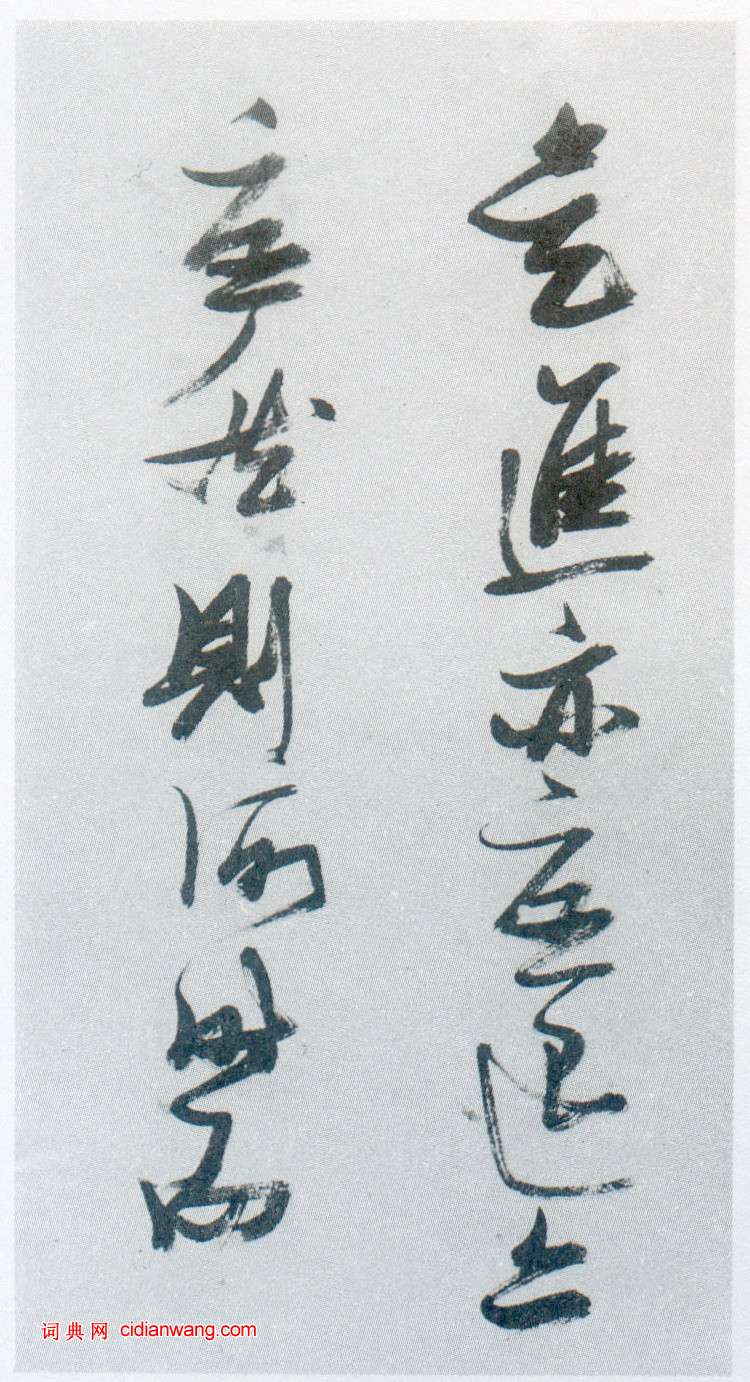 是進亦憂退亦
憂然則何時而
词典网 cidianwang.com